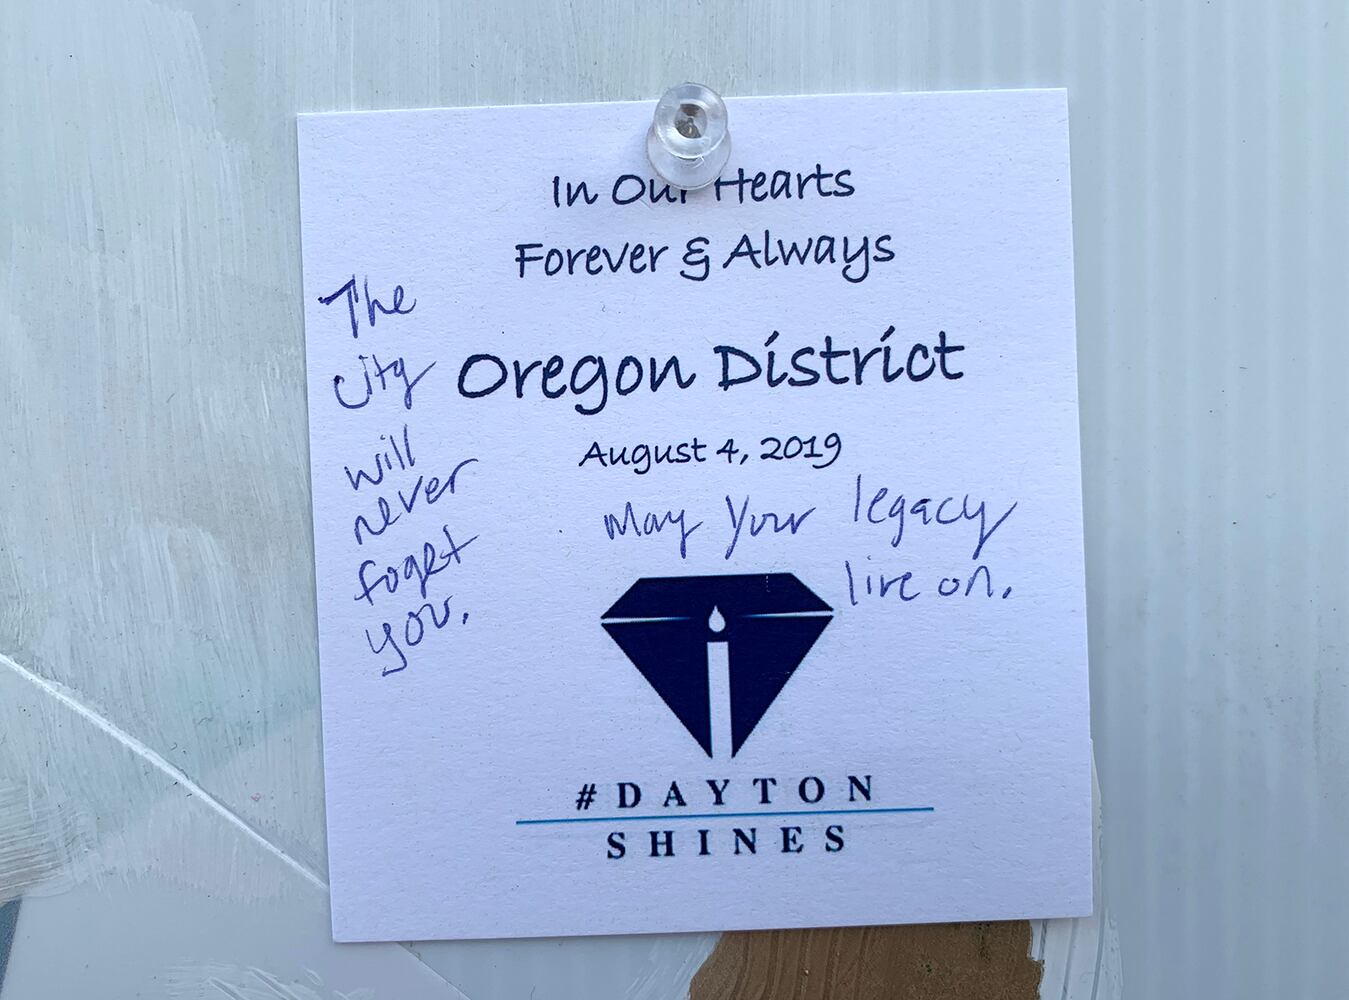 In Our Hearts
Forever & Always
Oregon District
August 4, 2019
The
city
will
never
foget
you.
May your legacy
live on.
#DAYTON
SHINES